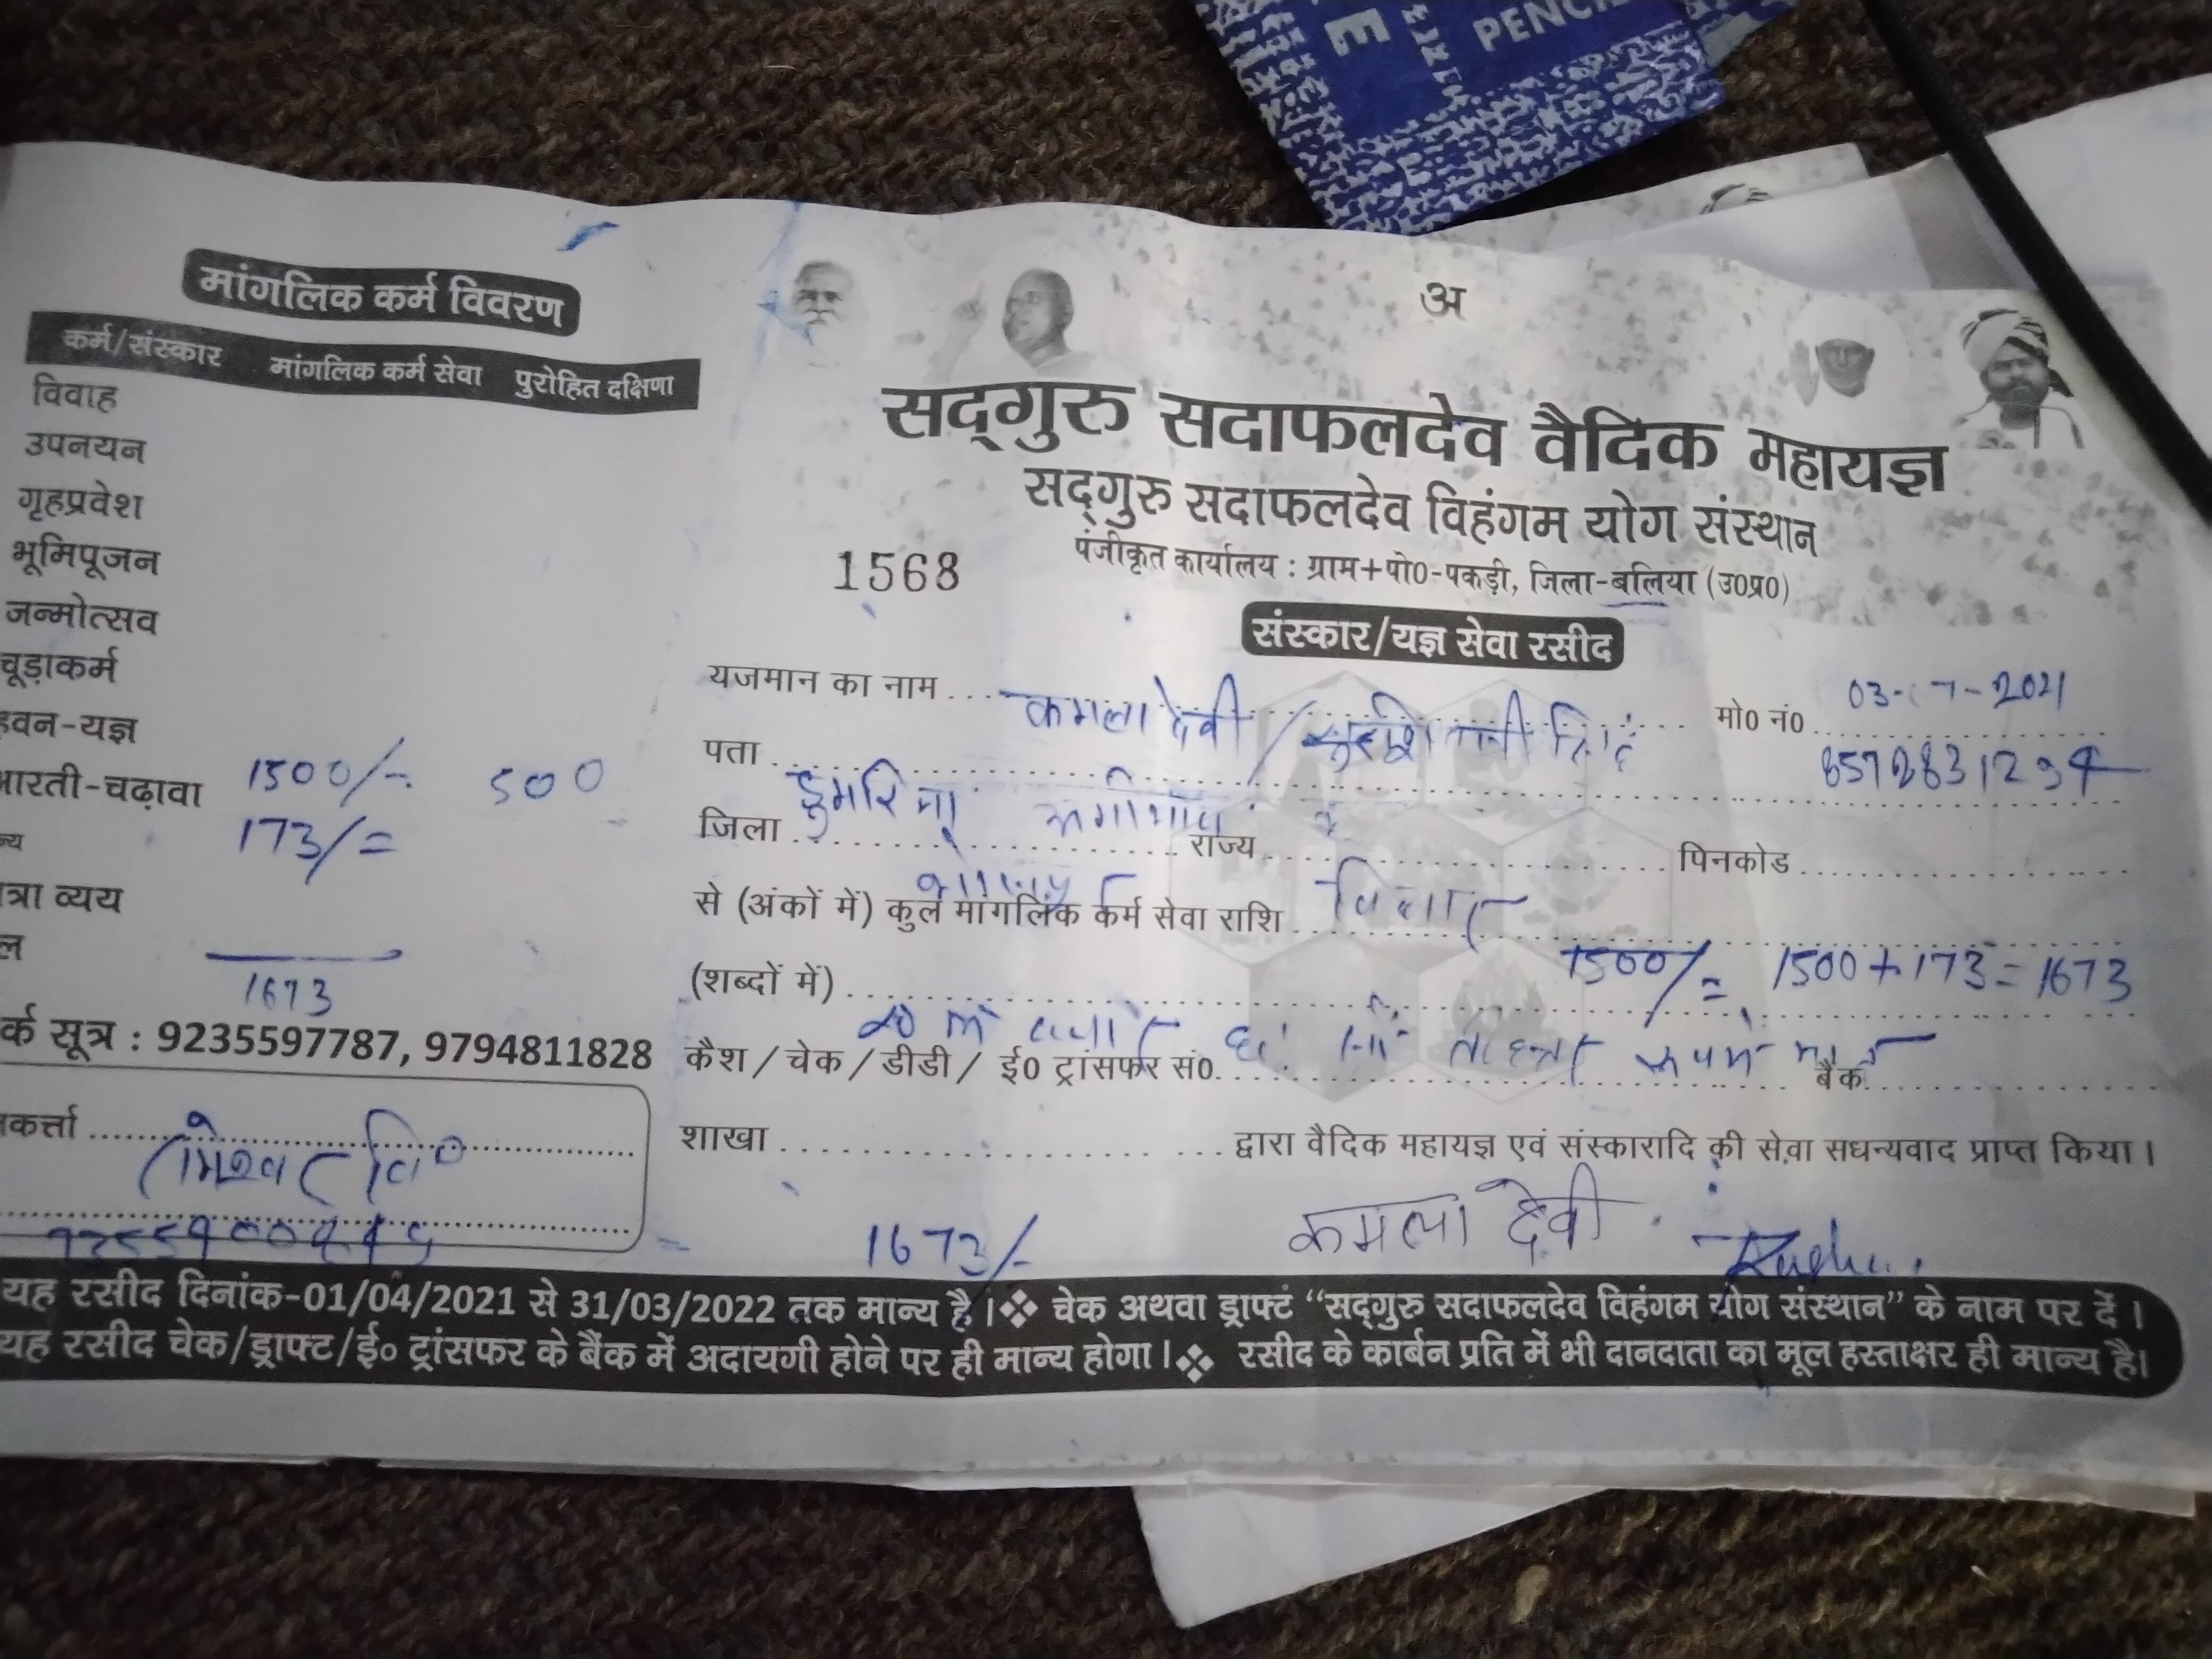 E
PENCI
मांगलिक कर्म विवरण
कर्म/संस्कार मांगलिक कर्म सेवा पुरोहित दक्षिणा
विवाह
उपनयन
गृहप्रवेश
भूमिपूजन
जन्मोत्सव
चूड़ाकर्म
हवन-यज्ञ
आरती-चढ़ावा 1500/- 500
न्य 173/=
त्रा व्यय
ल
1673
र्क सूत्र : 9235597787, 9794811828
कर्त्ता
अ
सद्गुरु सदाफलदेव वैदिक महायज्ञ
सद्गुरु सदाफलदेव विहंगम योग संस्थान
पंजीकृत कार्यालय : ग्राम+पो0-पकड़ी, जिला-बलिया (उ0प्र0)
1568
संस्कार/यज्ञ सेवा रसीद
यजमान का नाम कमला देवी / मो0 नं0
पता
जिला राज्य पिनकोड
से (अंकों में) कुल मांगलिक कर्म सेवा राशि
1500/= 1500+173=1673
(शब्दों में)
कैश / चेक / डीडी / ई0 ट्रांसफर सं0 बैंक
शाखा द्वारा वैदिक महायज्ञ एवं संस्कारादि की सेवा सधन्यवाद प्राप्त किया।
1673/- कमला देवी
यह रसीद दिनांक-01/04/2021 से 31/03/2022 तक मान्य है।❖ चेक अथवा ड्राफ्ट "सद्गुरु सदाफलदेव विहंगम योग संस्थान" के नाम पर दें।
यह रसीद चेक/ड्राफ्ट/ई० ट्रांसफर के बैंक में अदायगी होने पर ही मान्य होगा।❖ रसीद के कार्बन प्रति में भी दानदाता का मूल हस्ताक्षर ही मान्य है।